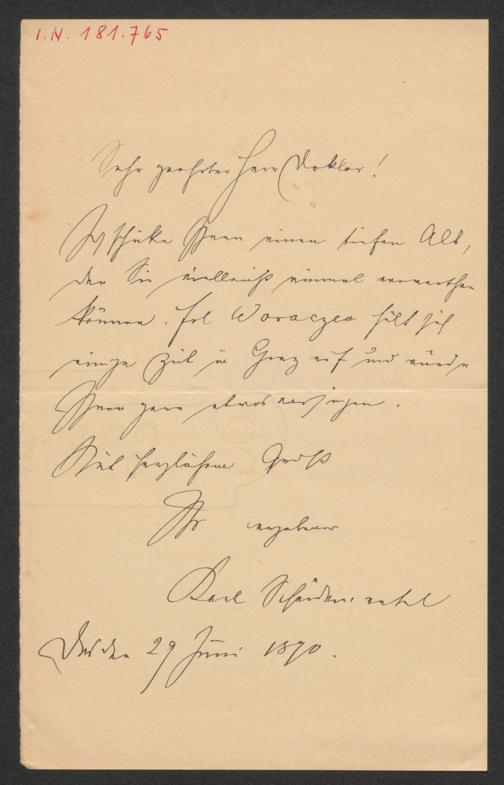 I.N. 181.765
Sehr geehrter Herr Doktor!
Ich schicke Ihnen einen tiefen Alt,
den Sie vielleicht einmal verwerthen
können. Frl Woraczec hält sich
einige Zeit in Graz auf und würde
Ihnen gern etwas vorsingen.
Mit herzlichem Gruß
Ihr ergebener
Karl Scheidemantel
Dresden 29 Juni 1890.